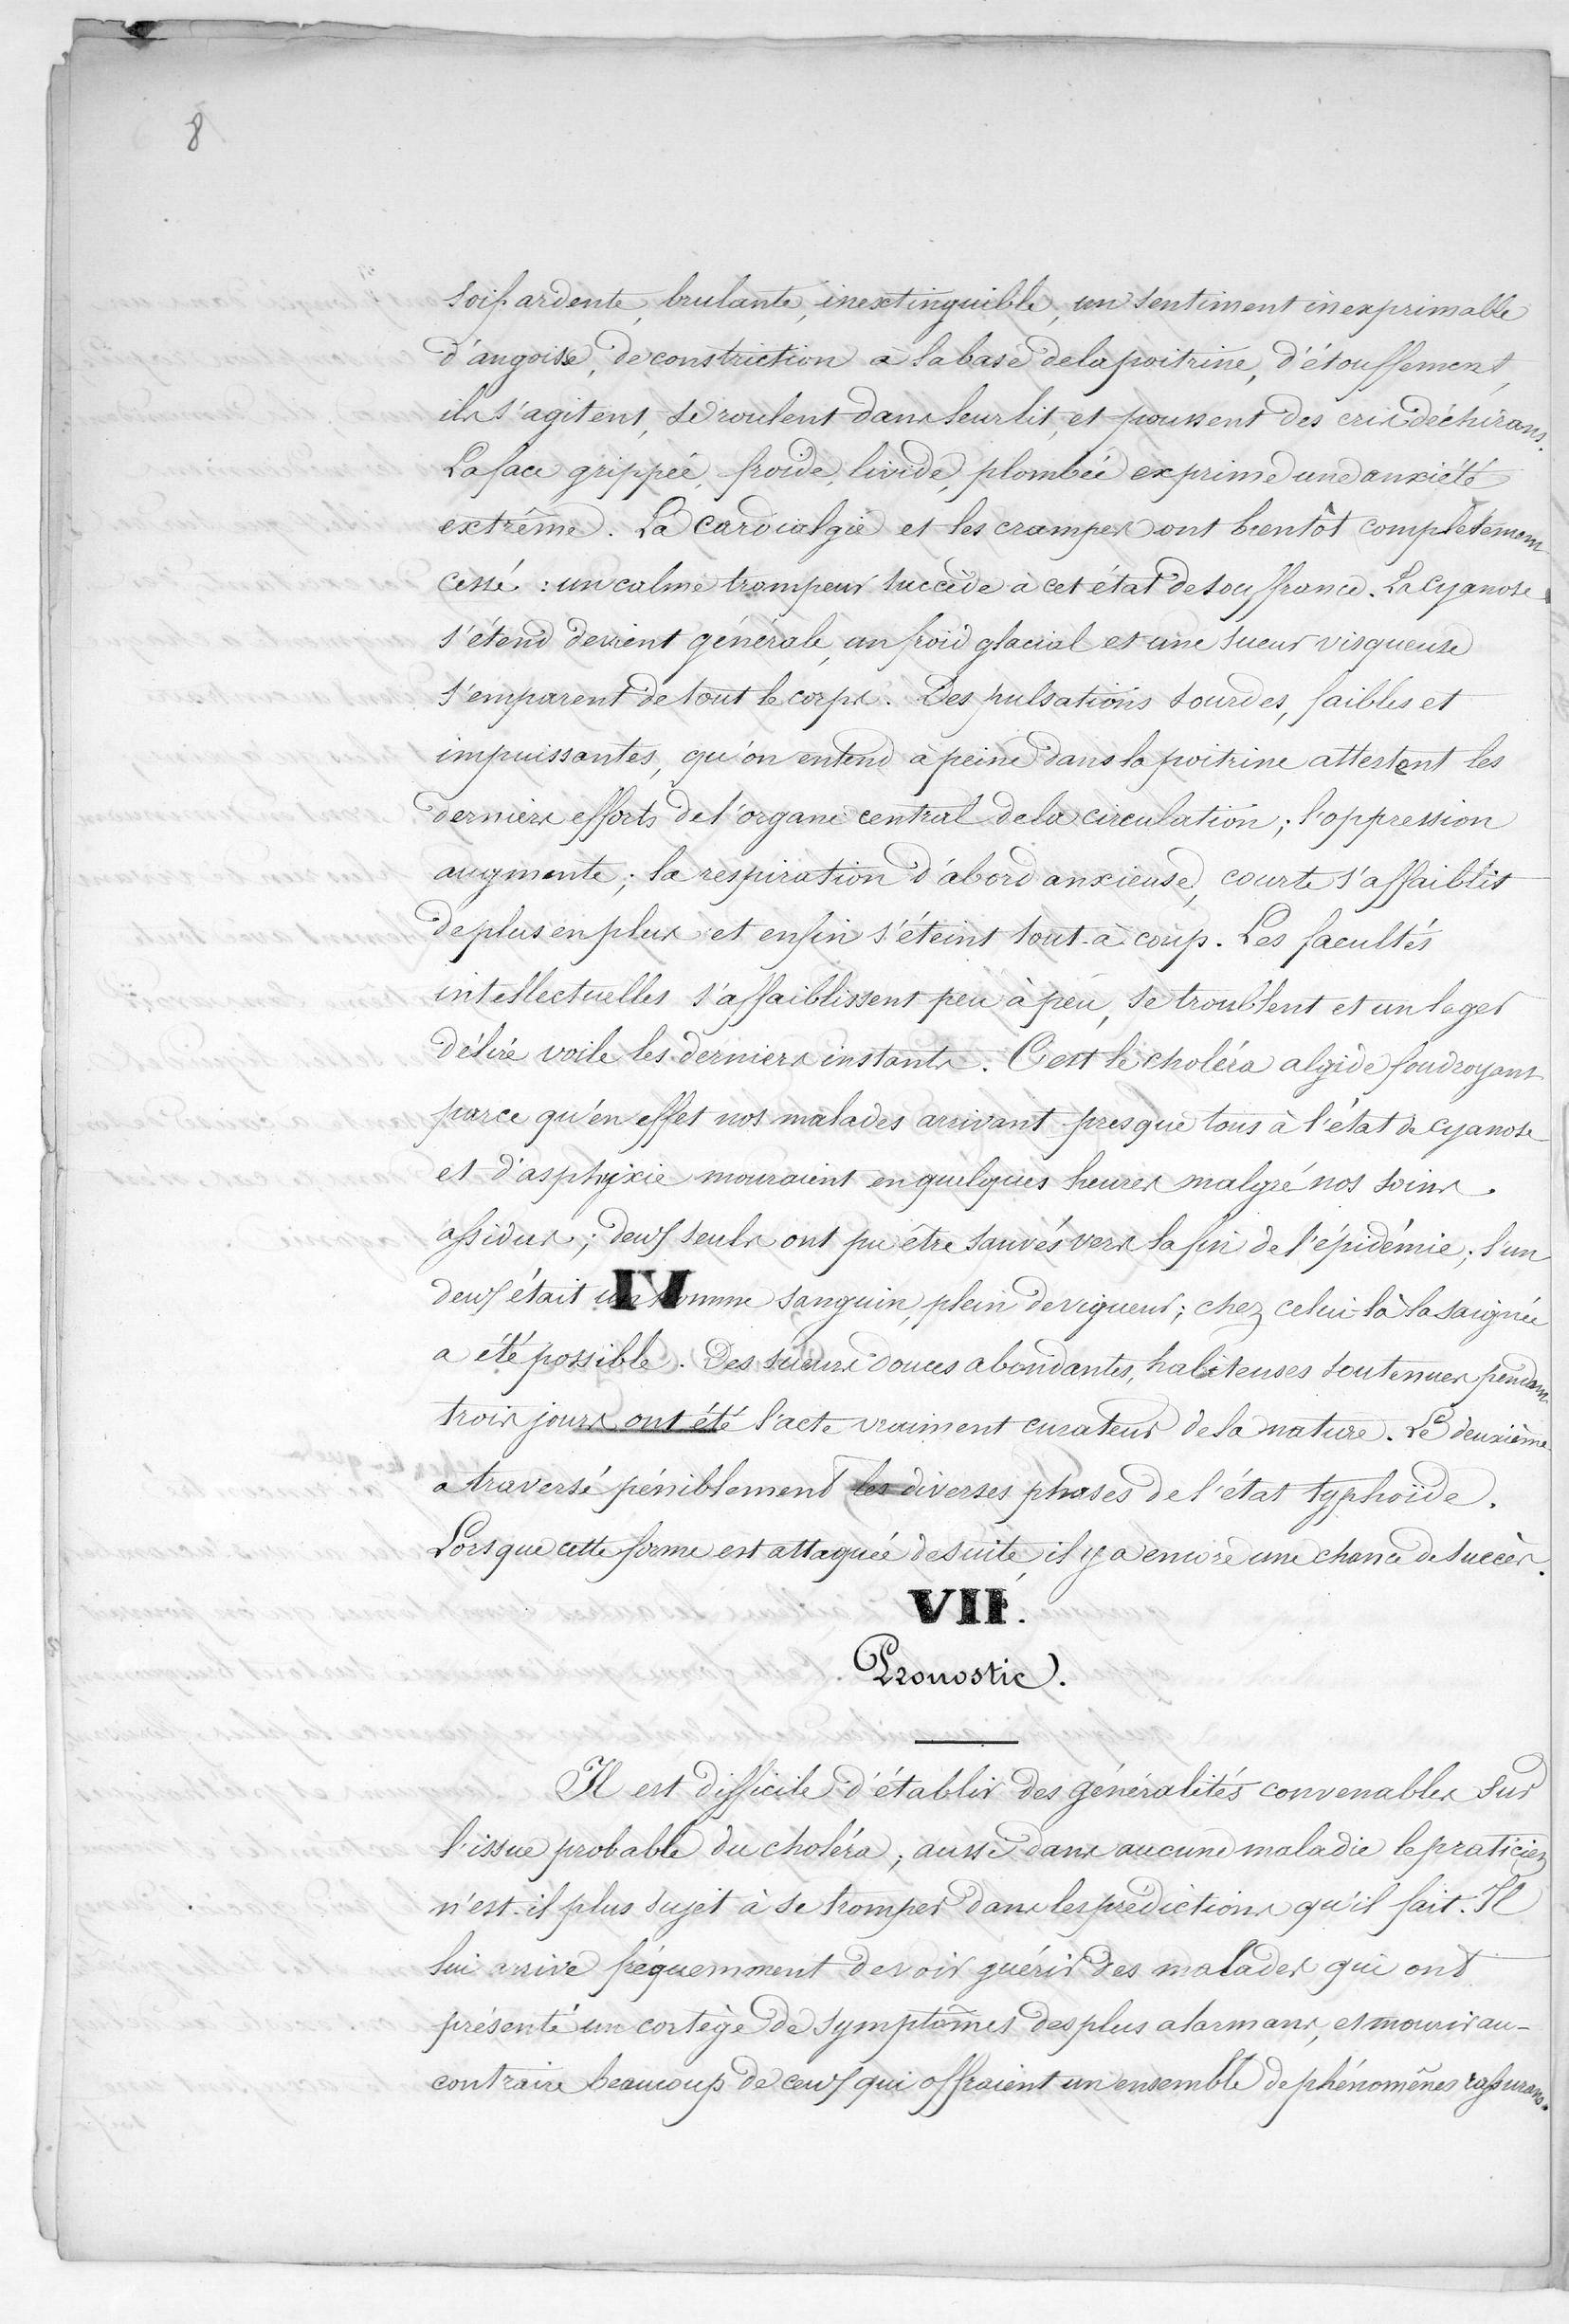 8
soif ardente, brulante, inextinguible, un sentiment inexprimable
d'angoisse, de constriction à la base de la poitrine, d'étouffement,
ils s'agitent, se roulent dans leur lit, et poussent des cris déchirans.
La face grippée, froide, livide, plombée exprime une anxiété
extrême. La cardialgie et les crampes ont bientôt complètement
cessé : un calme trompeur succède à cet état de souffrance. La cyanose
s'étend devient générale, un froid glacial et une sueur visqueuse
s'emparent de tout le corps. Des pulsations sourdes, faibles et
impuissantes, qu'on entend à peine dans la poitrine attestent les
derniers efforts de l'organe central de la circulation ; l'oppression
augmente ; la respiration d'abord anxieuse, courte s'affaiblit
de plus en plus et enfin s'éteint tout-à-coup. Les facultés
intellectuelles s'affaiblissent peu à peu, se troublent et un leger
délire voile les derniers instants. C'est le choléra algide foudroyant
parce qu'en effet nos malades arrivant presque tous à l'état de cyanose
et d'asphyxie mouraient en quelques heures malgré nos soins
assidus ; deux seuls ont pu être sauvés vers la fin de l'épidémie ; l'un
deux était un homme sanguin, plein de vigueur ; chez celui-là la saignée
IV
a été possible. Des sueurs douces abondantes, haliteuses soutenues pendant
trois jours ont été l'acte vraiment curateur de la nature. Le deuxième
a traversé péniblement les diverses phases de l'état typhoïde.
Lorsque cette forme est attaquée de suite, il y a encore une chance de succès.
VII.
Pronostic.
Il est difficile d'établir des généralités convenables sur
l'issue probable du choléra ; aussi dans aucune maladie le praticien
n'est-il plus sujet à se tromper dans les prédictions qu'il fait. Il
lui arrive fréquemment de voir guérir des malades qui ont
présenté un cortège de symptômes des plus alarmans, et mourir au-
contraire beaucoup de ceux qui offraient un ensemble de phénomènes rassurans.